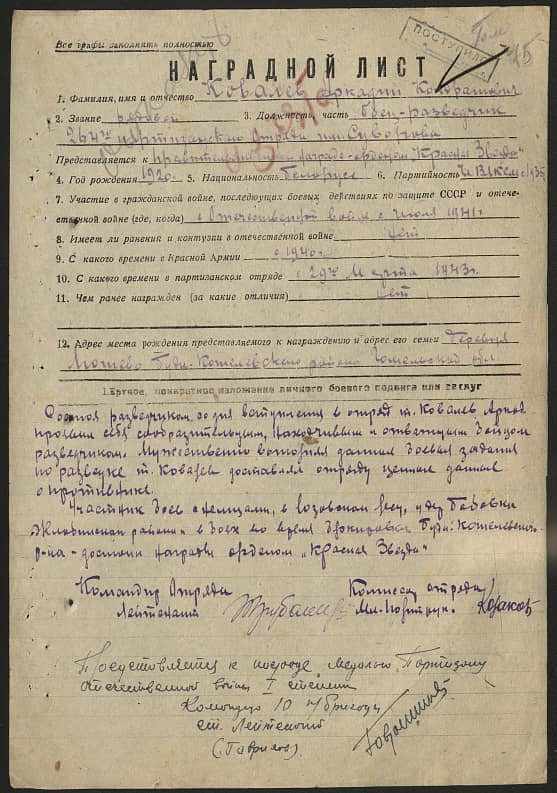 Все графы заполнять полностью
ПОСТУПИЛ
45
НАГРАДНОЙ ЛИСТ
1. Фамилия, имя и отчество Ковалев Аркадий
2. Звание рядовой 3. Должность часть боец-разведчик
264го партизанского отряда им. Суворова
Представляется к правительственной награде-орденом "Красная Звезда"
4. Год рождения 1920г. 5. Национальность Белорусс 6. Партийность ВЛКСМ с 1936
7. Участие в гражданской войне, последующих боевых действиях по защите СССР и отече-
ственной войне (где, когда) в Отечественной войне с июля 1941г.
8. Имеет ли ранения и контузии в отечественной войне Нет
9. С какого времени в Красной Армии с 1940г.
10. С какого времени в партизанском отряде с 29го Марта 1943г.
11. Чем ранее награжден (за какие отличия) Нет
12. Адрес места рождения представляемого к награждению и адрес его семьи Деревня
Буда-Кошелевского района Гомельской обл.
I. Краткое, конкретное изложение личного боевого подвига или заслуг
разведчиком со дня вступления в отряд т. Ковалев
проявил себя сообразительным, находчивым и отважным бойцом
разведчиком. Мужественно выполняя данные боевые задания
по разведке т. Ковалев доставлял отряду ценные данные
о противнике.
Участник боев с немцами, в лесу, у дер.
Жлобинского района и в боях во время Буда-Кошелевского
р-на - достоин награды орденом "Красная Звезда"
Командир отряда Комиссар отряда
Лейтенант Мл. политрук.
Представляется к награде медалью "Партизану
Отечественной войны" I степени
Командир 10 п/бригады
ст. Лейтенант
(Гаврилов)